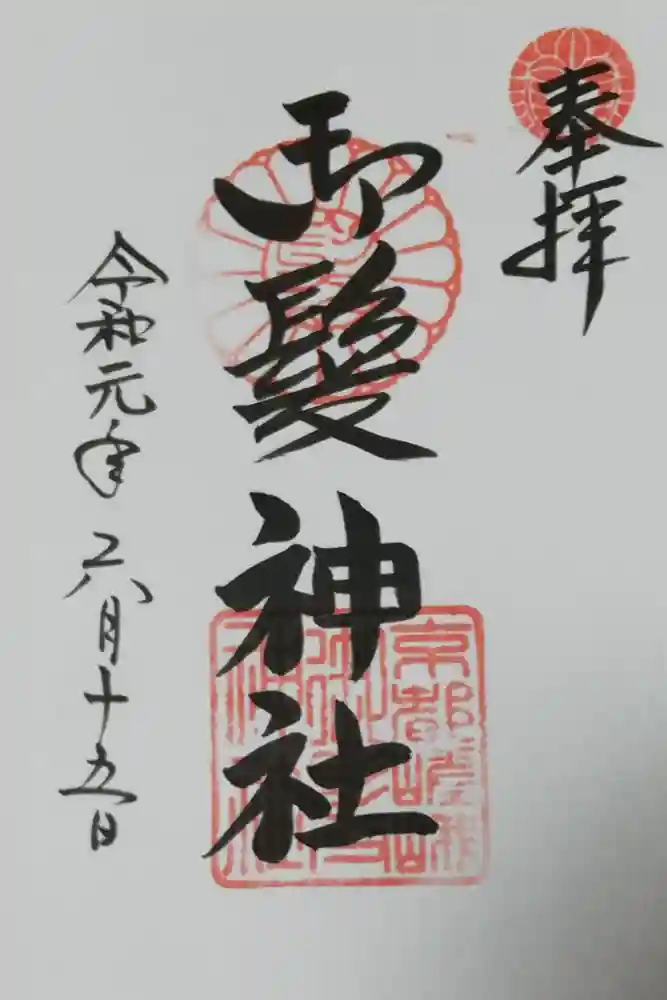 奉拝
御髪神社
令和元年六月十五日
京都嵯峨